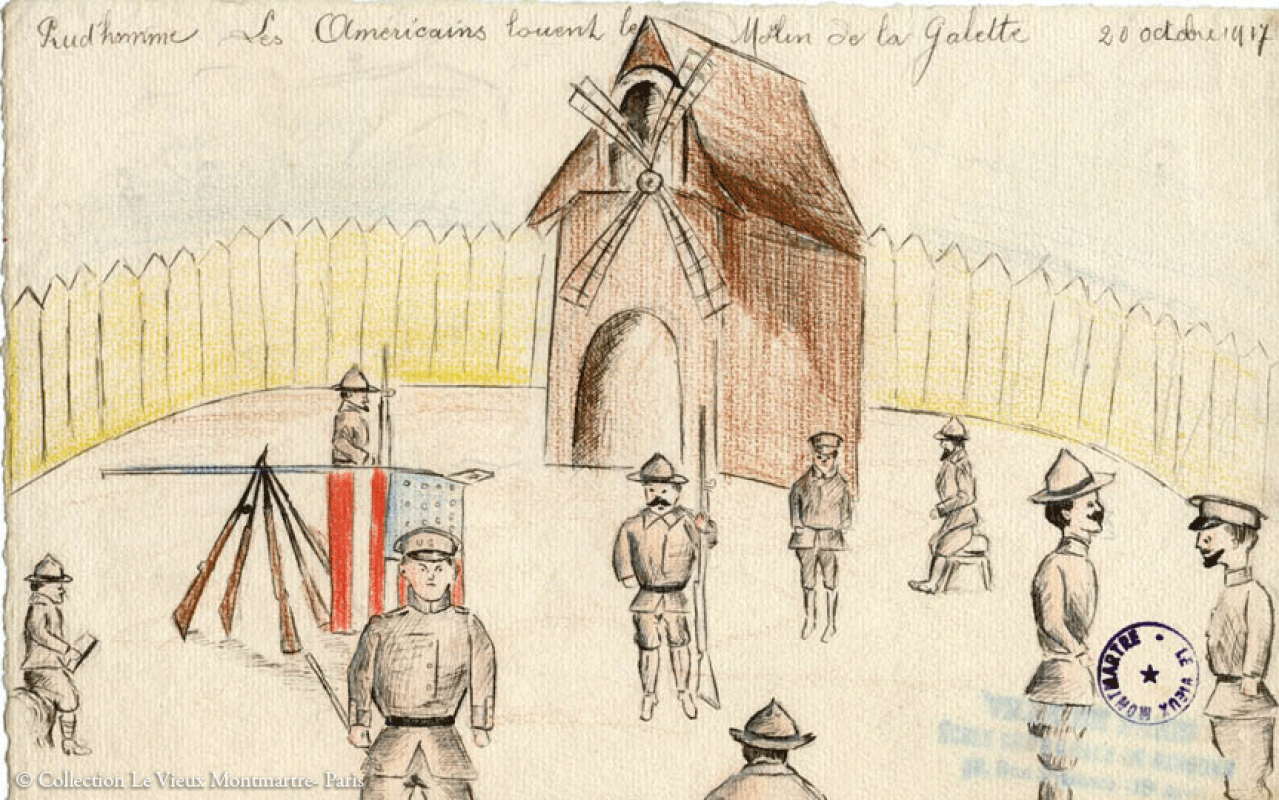 Prudhomme Les Americains louent le Molin de la Galette 20 octobre 1917
US
LE VIEUX MONTMARTRE
© Collection Le Vieux Montmartre- Paris